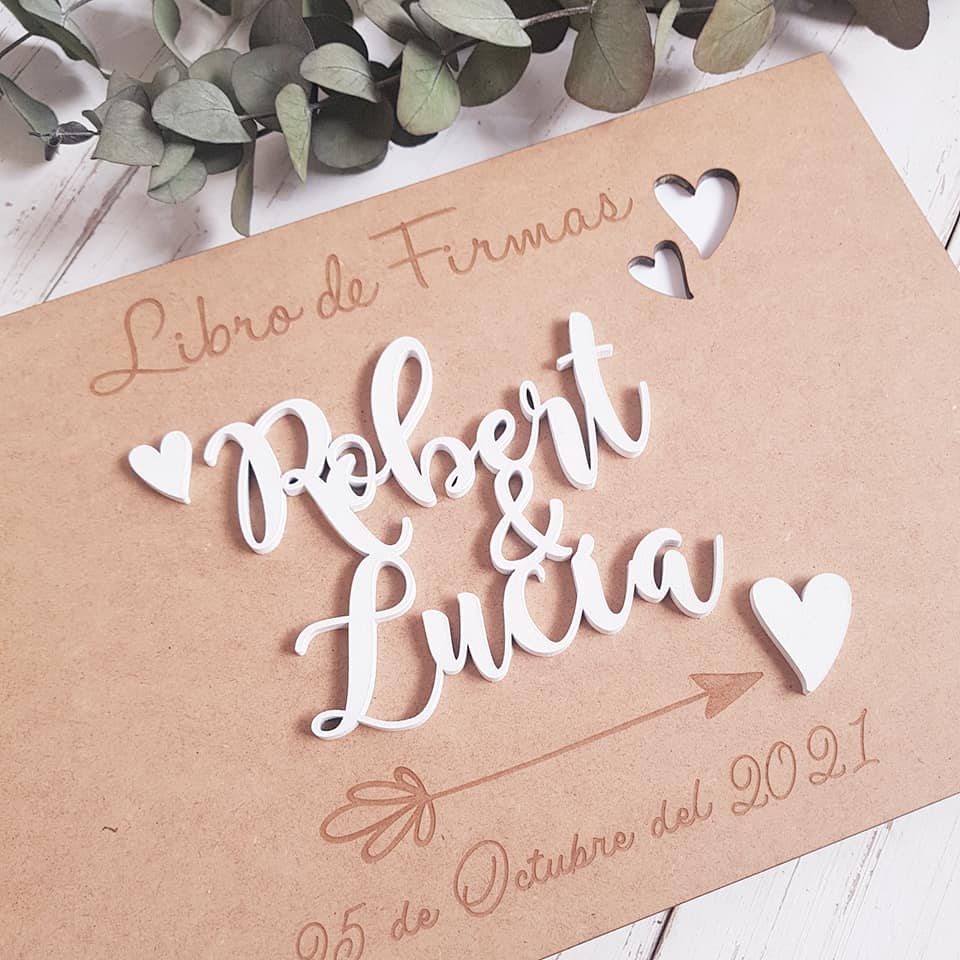 Libro de Firmas
Robert
&
Lucia
25 de Octubre del 2021